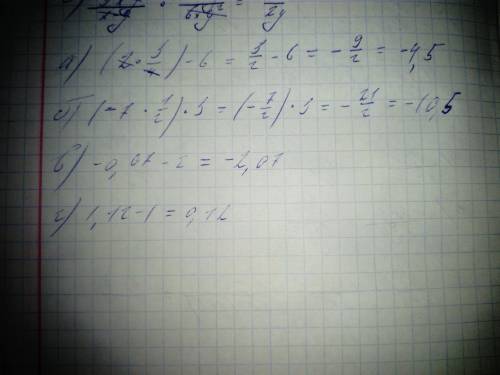 а) (2 · 3/4) - 6 = 3/2 - 6 = - 9/2 = -4,5
б) (-7 · 1/2) · 3 = (- 7/2) · 3 = - 21/2 = -10,5
в) -0,07 - 2 = -2,07
г) 1,12 - 1 = 0,12